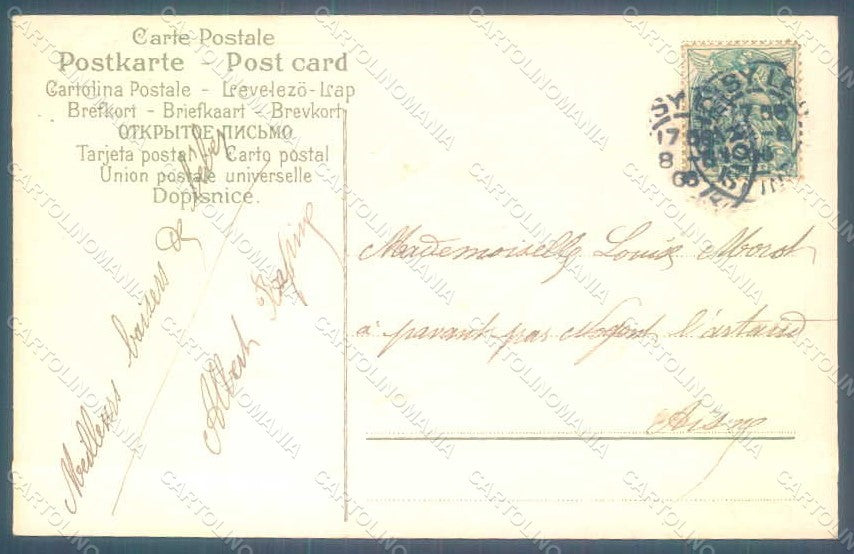 Carte Postale
Postkarte - Post card
Cartolina Postale - Levelezö-Lap
Brefkort - Briefkaart - Brevkort
ОТКРЫТОЕ ПИСЬМО
Tarjeta postal Carto postal
Union postale universelle
Dopisnice.
Meilleurs baisers de
Albert
Mademoiselle Louise Morot
à pavant par Nogent l'artaud
Aisne
CARTOLINOMANIA